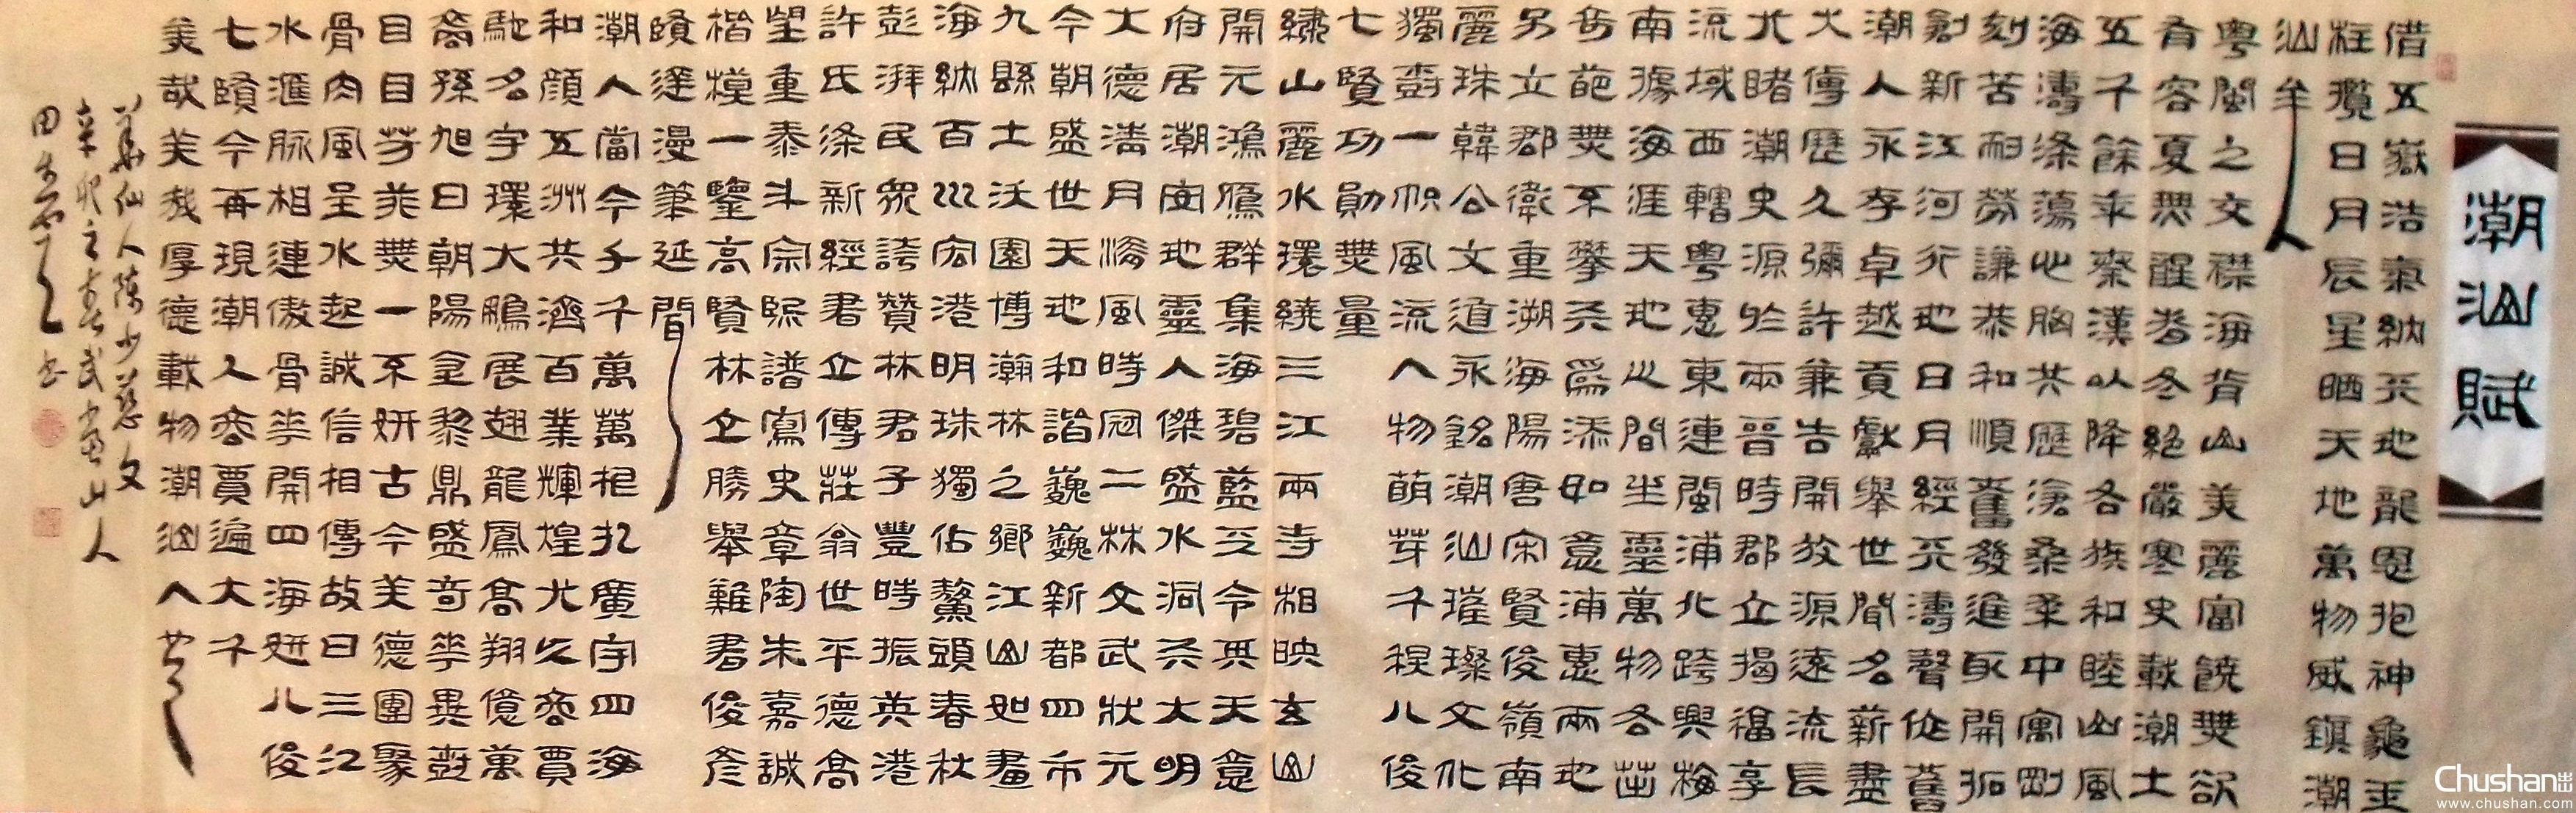 潮汕賦
借五嶽浩氣納天地龍恩抱神龜玉
柱攬日月辰星晒天地萬物威鎮潮
汕牟
粵閩之交襟海背山美麗富饒雙欲
有容夏無酲暑冬絕嚴寒史載潮土
五千餘年秦漢以降各族和睦山風
海濤滌蕩心胸共歷滄桑柔中寓剛
刻苦耐勞謙恭和順奮發進取開拓
創新江河行地日月經天濤聲依舊
潮人永存卓越貢獻舉世聞名薪盡
火傳歷久彌許兼告開放源遠流長
尤睹潮史源於兩晉時郡立揭福享
流域西轄粵惠東連閩浦北跨興梅
南據海涯天地心間坐靈萬物各茁
奇葩無不攀炎為添如意浦惠兩地
另立郡衛重溯海陽唐宋賢俊嶺南
麗珠韓公文道永銘潮汕璀璨文化
獨樹一幟風流人物萌芽千程八俊
七賢功勛無量
繡山麗水環繞三江兩寺相映玄山
開元鴻雁群集海碧藍令典天意
府居潮安地靈人傑盛水洞炎大明
大德浩月滂風時冠二林文武狀元
今朝盛世天地和諧巍巍新都四市
九縣土沃園博瀚林之鄉江山如畫
海納百川宏港明珠獨佔鰲頭春秋
彭湃民眾誇贊林君子豐時振英港
許氏滌新經君立傳莊翁世平德高
望重泰斗宗熙譜寫史章陶朱嘉誠
楷模一鑒高賢林立勝舉難書俊彥
賾漫筆延聞
潮人當今千千萬萬根扎廣宇四海
和顏五洲共濟百業輝煌尤久商賈
馳名宇環大鵬展翅龍鳳高翔億萬
裔孫旭日朝陽金黎鼎盛奇花異樹
目目芬芳無一不妍古今美德團聚
骨肉風呈水起誠信相傳故曰三江
水滙脈相連傲骨花開四海妍八俊
七賢今再現潮人商賈遍大千
美哉美哉厚德載物潮汕人也
仙人陳少慈文
辛卯之春武當山人
田書
Chushan出山
www.chushan.com